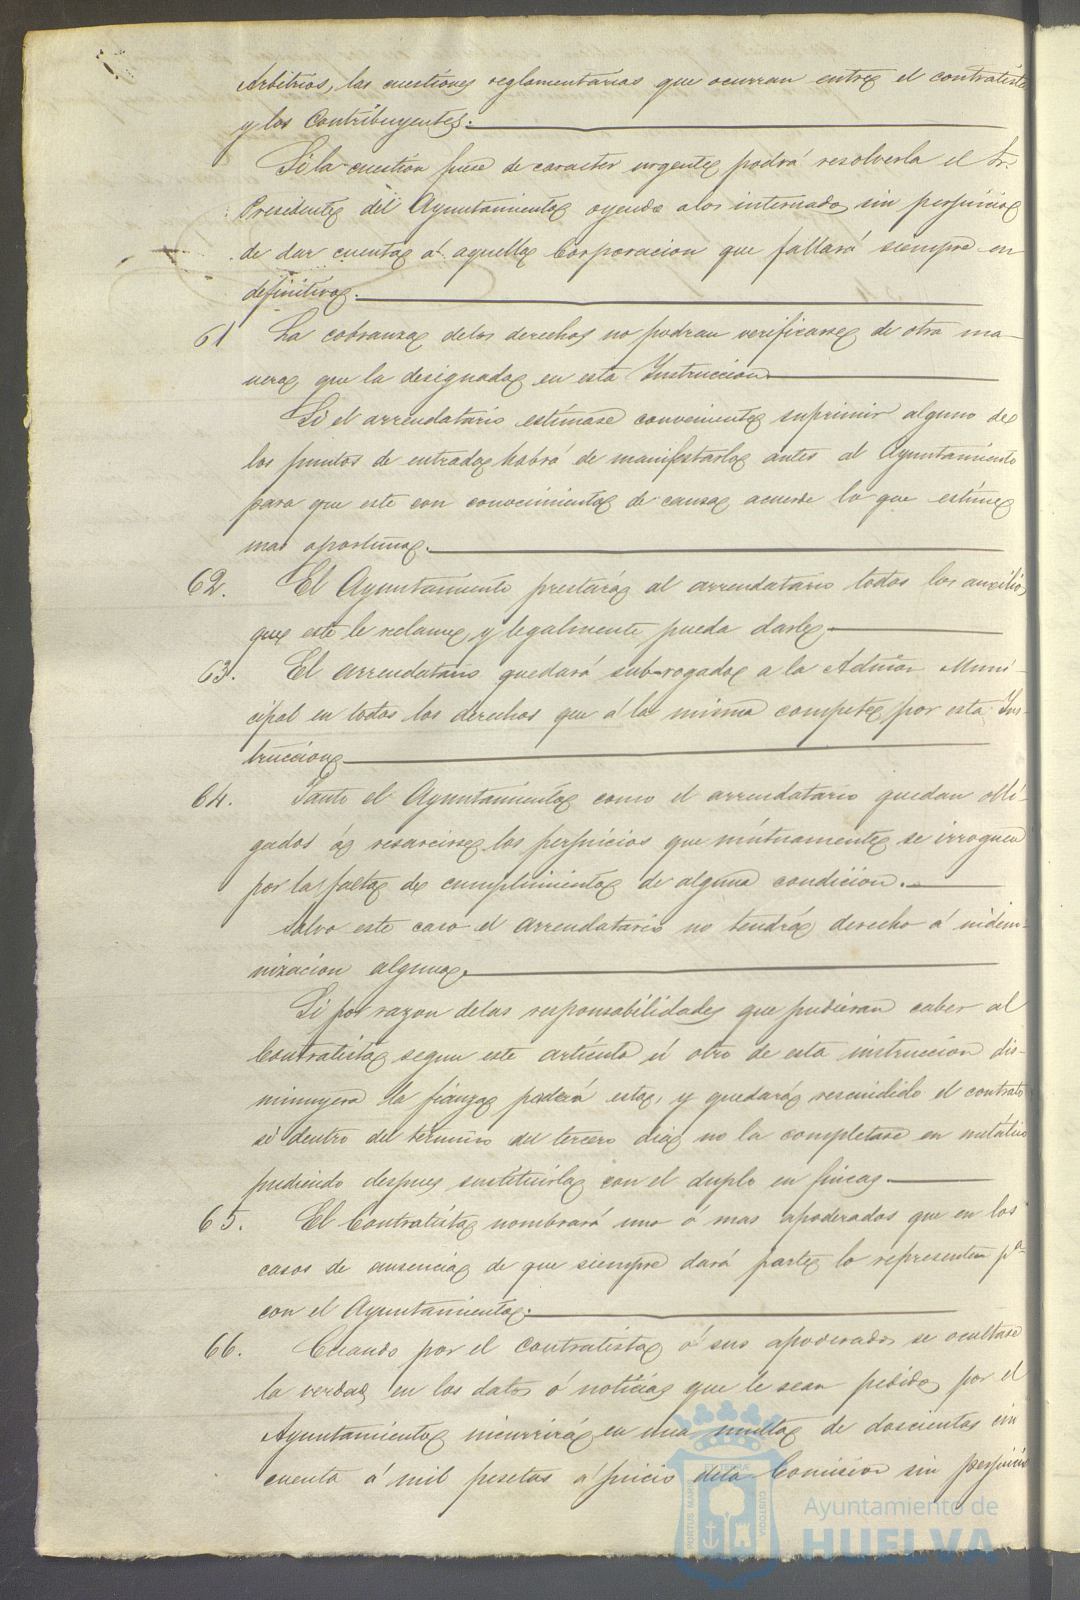 Arbitrios, las cuestiones reglamentarias que ocurran entre el contratista
y los Contribuyentes.
Si la cuestion fuese de caracter urgente podrá resolverla el Sr.
Presidente del Ayuntamiento oyendo a los interesados, sin perjuicio
de dar cuenta á aquella Corporacion que fallará siempre en
definitiva.
61 La cobranza de los derechos no podran verificarse de otra ma-
nera que la designada en esta Instruccion
Si el arrendatario estimase conveniente suprimir alguno de
los puntos de entrada habrá de manifestarlo antes al Ayuntamiento
para que este con conocimiento de causa acuerde lo que estime
mas oportuno.
62. El Ayuntamiento prestará al arrendatario todos los auxilios
que este le reclame y legalmente pueda darle.
63. El arrendatario quedará subrogado a la Admon Muni-
cipal en todos los derechos que á la misma compete por esta Ins-
truccion
64. Tanto el Ayuntamiento como el arrendatario quedan obli-
gados á resarcirse los perjuicios que mútuamente se irroguen
por la falta de cumplimiento de alguna condicion.
Salvo este caso el arrendatario no tendrá derecho á indem-
nizacion alguna.
Si por razon de las responsabilidades que pudieran caber al
Contratista segun este artículo ú otro de esta instruccion dis-
minuyera la fianza perderá esta, y quedará rescindido el contrato
si dentro del término del tercero dia no la completase en metálico
pudiendo despues sustituirla con el duplo en fincas.
65. El Contratista nombrará uno ó mas apoderados que en los
casos de ausencia de que siempre dará parte lo representen pa
con el Ayuntamiento.
66. Cuando por el contratista ó sus apoderados se ocultase
la verdad en los datos ó noticias que le sean pedidos por el
Ayuntamiento incurrirá en una multa de doscientas cin
cuenta á mil pesetas á juicio de la Comision sin perjuicio
PORTUS MARIS ET TERRÆ CUSTODIA
Ayuntamiento de
HUELVA